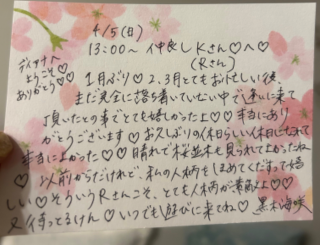 4/5(日)
13:00〜 仲良しKさん♡へ♡
(Rさん)
ディアナへ
ようこそ♡
ありがとう♡♡
1月ぶり♡ 2、3月とてもお忙しい後、
まだ完全に落ち着いていない中で逢いに来て
頂いたとの事でとても嬉しかったよ♡♡ 本当にあり
がとうございます♡ お久しぶりの休日らしい休日になれて
本当によかった♡♡ 晴れて桜並木も見られてよかったね
♡♡ 以前からだけれど、私の人柄をほめてくださって嬉
しい♡ そういうRさんこそ、とても人柄が素敵よ♡♡♡
又待ってるけん♡ いつでも遊びに来てね♡ 黒木海咲